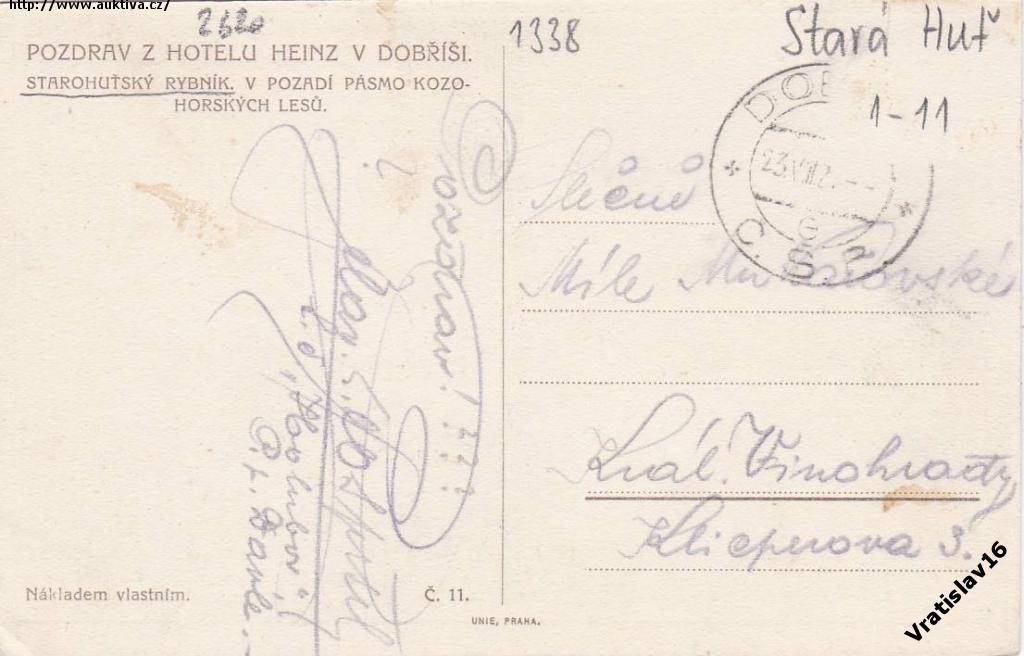 http://www.auktiva.cz/
2620
1338
Stará Huť
1-11
POZDRAV Z HOTELU HEINZ V DOBŘÍŠI.
STAROHUŤSKÝ RYBNÍK. V POZADÍ PÁSMO KOZO-
HORSKÝCH LESŮ.
DOB
23.VIII.2
C.S.P.
Pozdrav!
Slečně
Míle
Král. Vinohrady
Klicperova 3.
Nákladem vlastním.
Č. 11.
UNIE, PRAHA.
Vratislav16